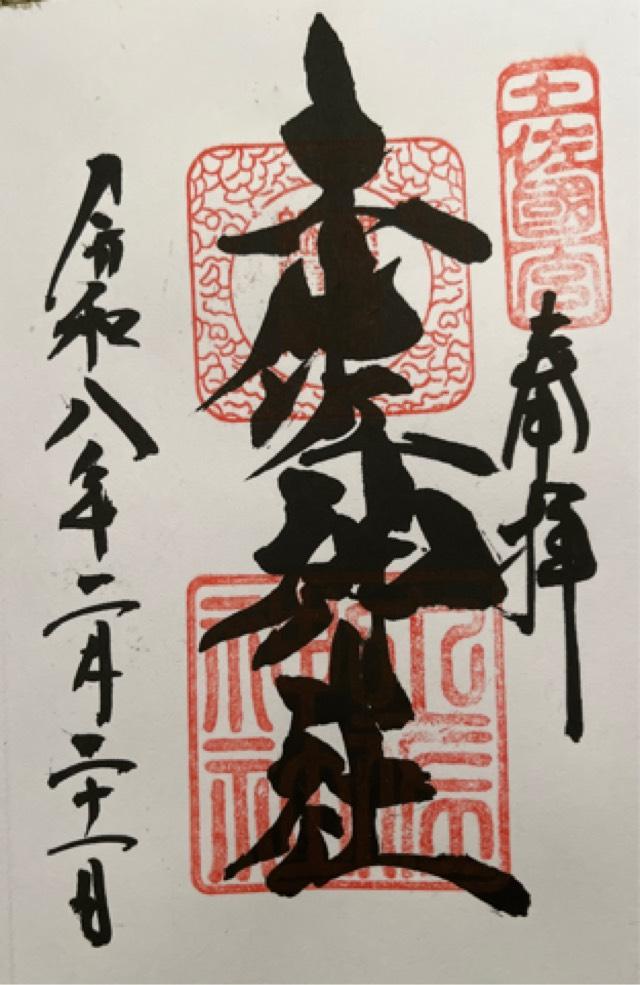 土佐國一宮
奉拝
土佐神社
土佐
神社
令和八年二月二十一日